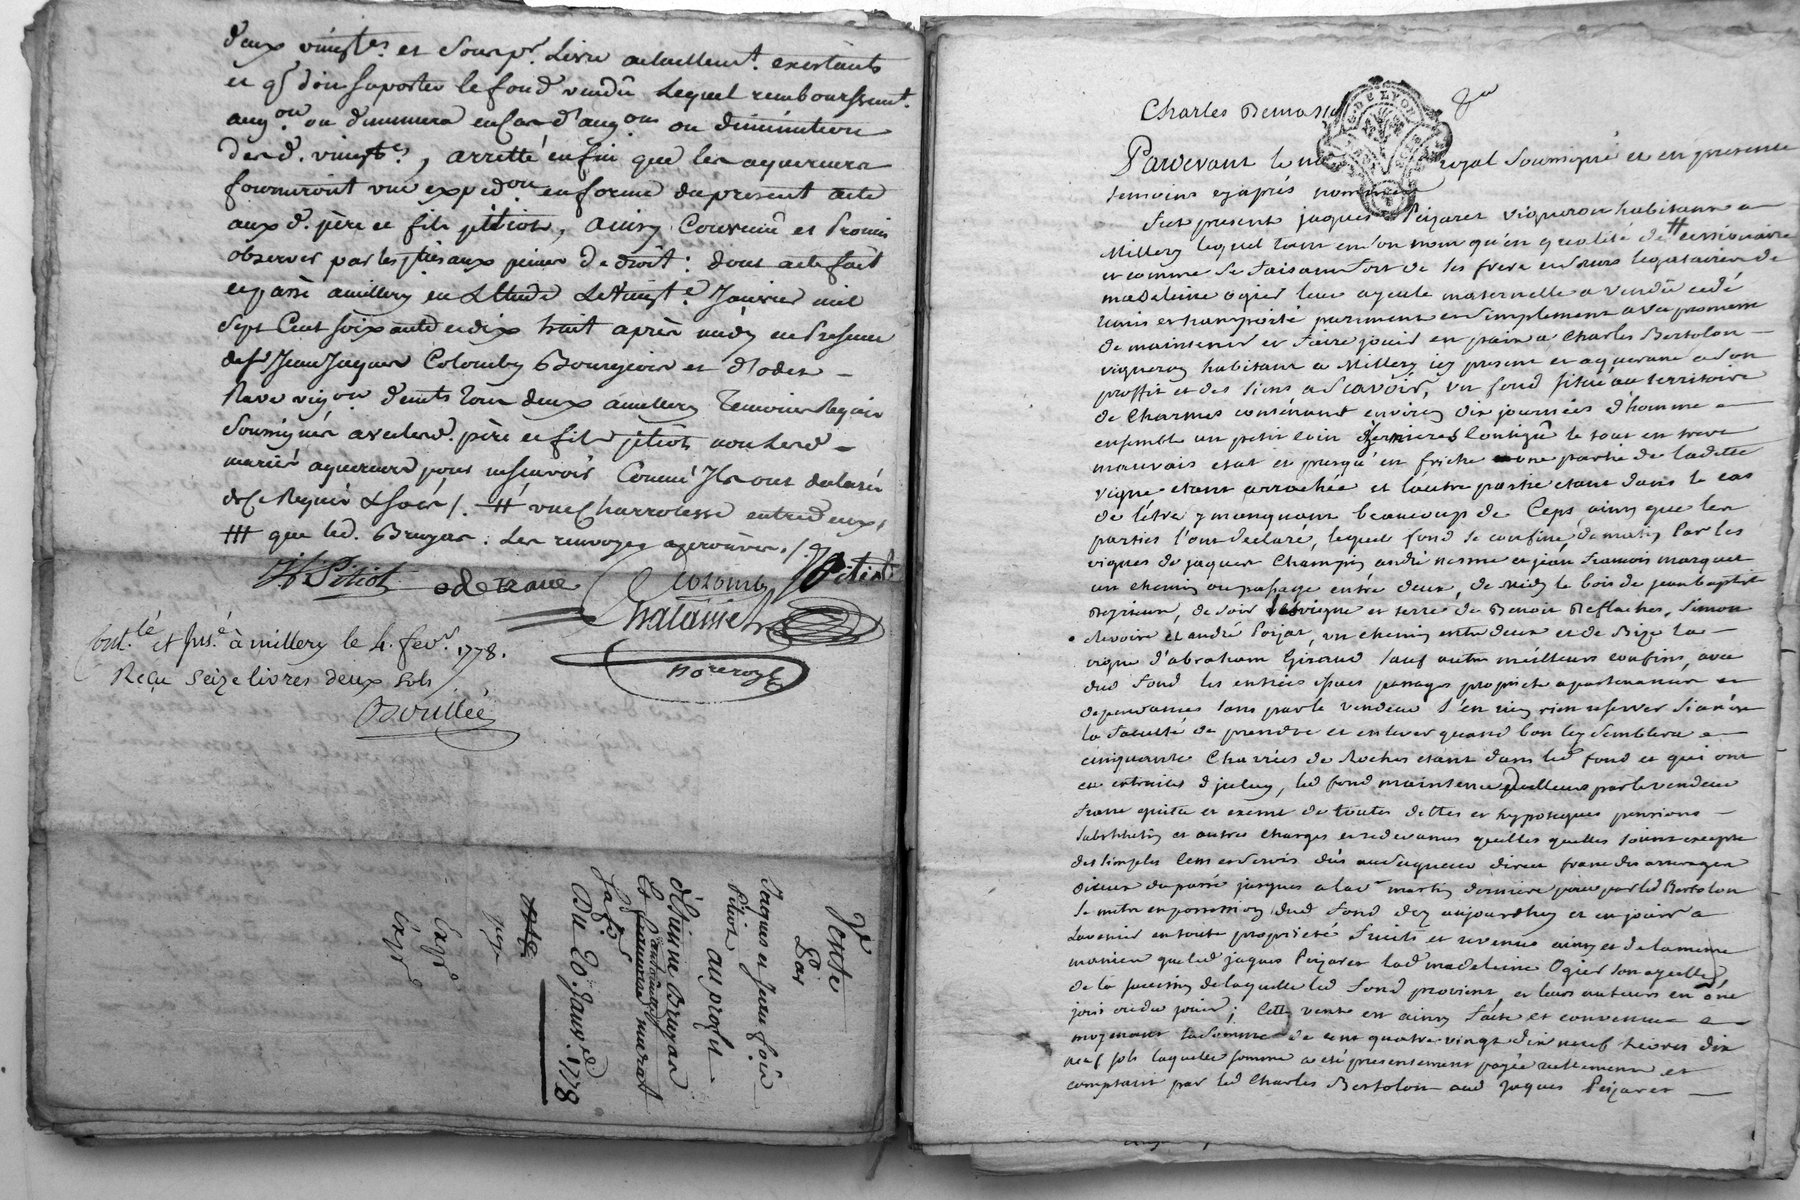 deux vingt.es et sous pr. Livre actuellem.t existants
et q.l doit suporter le fond vendû Lequel remboursem.t
aug.on ou diminuera en cas d'aug.on ou diminution
desd. vingt.es, arretté enfin que les aquereurs
fourniront une exped.on en forme du present acte
aux d. père et fils pitiot, ainsy Convenu et Promis
observer par les p.ties aux peines de droit: dont acte fait
et passé a millery en L'Etude Le Vingt.e Janvier mil
Sept Cent soixante et dix huit après midy en Presence
de s.r Jean Jaques Colomby Bourgeois et d'odet
Rave vig.on d'eux tous deux a millery Temoins Requis
Soussignés avec lesd. père et fils pitiot non lesd
mariés aquereurs pour ne scavoir Comme Ils ont declaré
de ce Requis & soés /. # une Charrotesse entre deux,
## que led. Bruyas. Les renvoyes aprouvés ./.
Pitiot odet rave Colomby J Pitiot
Chalamel
no.re royl
Cont.lé et Ins.é à millery le 4. fev.r 1778.
Reçu seize livres deux sols
Bouillée
V.te
Vente
Par
Jaques et Jean foïs
Pitiot
au profit
d'Etienne Bruyas
Et Jeanne murat
Sa f.e
Du 20. Janv.er 1778
Exp.é
Exp.é
Charles Demass
DE LYON
Pardevant le no royal soussigné et en presence
temoins cy après nommés
Fut present jaques Peizaret vigneron habitant a
Millery lequel tant en son nom qu'en qualité de # cessionaire
et comme se faisant fort de ses frere et sœurs legataires de
madeleine ogier leur ayeule maternelle a vendu cedé
remis et transporté purement et simplement avec promesse
de maintenir et faire jouir en paix a Charles Bertolon
vigneron habitant a Millery icy present et aquerant a son
proffit et des siens a Scavoir, un fond situé au territoire
de Charmes contenant environ dix journées d'homme
ensemble un petit coin d'hermieres contigue le tout en tres
mauvais etat et presqu'en friche une partie de ladite
vigne etant arrachée et l'autre partie etant dans le cas
de l'être y manquant beaucoup de Ceps, ainsy que les
parties l'ont declaré, lequel fond se confine, de matin Par les
vignes de jaques Champin andré nesme et jean francois marquet
un chemin ou passage entre deux, de midy le bois de jean baptiste
de soir les vigne et terre de Benoit Deflaches, Simon
Revoire et andré Poizat, un chemin entre deux et de Bize la
vigne d'abraham Giraud sauf autres meilleurs confins, avec
dud fond les entrées issues passages proprieté apartenances et
dependances sans par le vendeur s'en rien reserver si non
la faculté de prendre et enlever quand bon luy semblera
cinquante Charriés de Roches etant dans led fond et qui ont
eté extraites d'iceluy, led fond maintenu par le vendeur
franc quitte et exempt de toutes dettes et hypoteques pensions
substitution et autres charges et redevances quelles quelles soient excepté
des simples cens et servis dûs au seigneur direct franc des arrerages
d'iceux du passé jusques a la s.t martin derniere pour par led Bertolon
se mettre en possession dud fond dez aujourdhuy et en jouir a
Lavenir en toute proprieté fruits et revenus ainsy et de la meme
maniere que led jaques Peizaret lad madeleine Ogier son ayeulle
de la succession de laquelle led fond provient, et leurs auteurs en ont
joui ou du jouir; Cette vente est ainsy faite et convenue
moyenant la somme de cent quatre vingt dix neuf livres dix
neuf sols laquelle somme a eté presentement payée reellement et
comptant par led Charles Bertolon aud jaques Peizaret